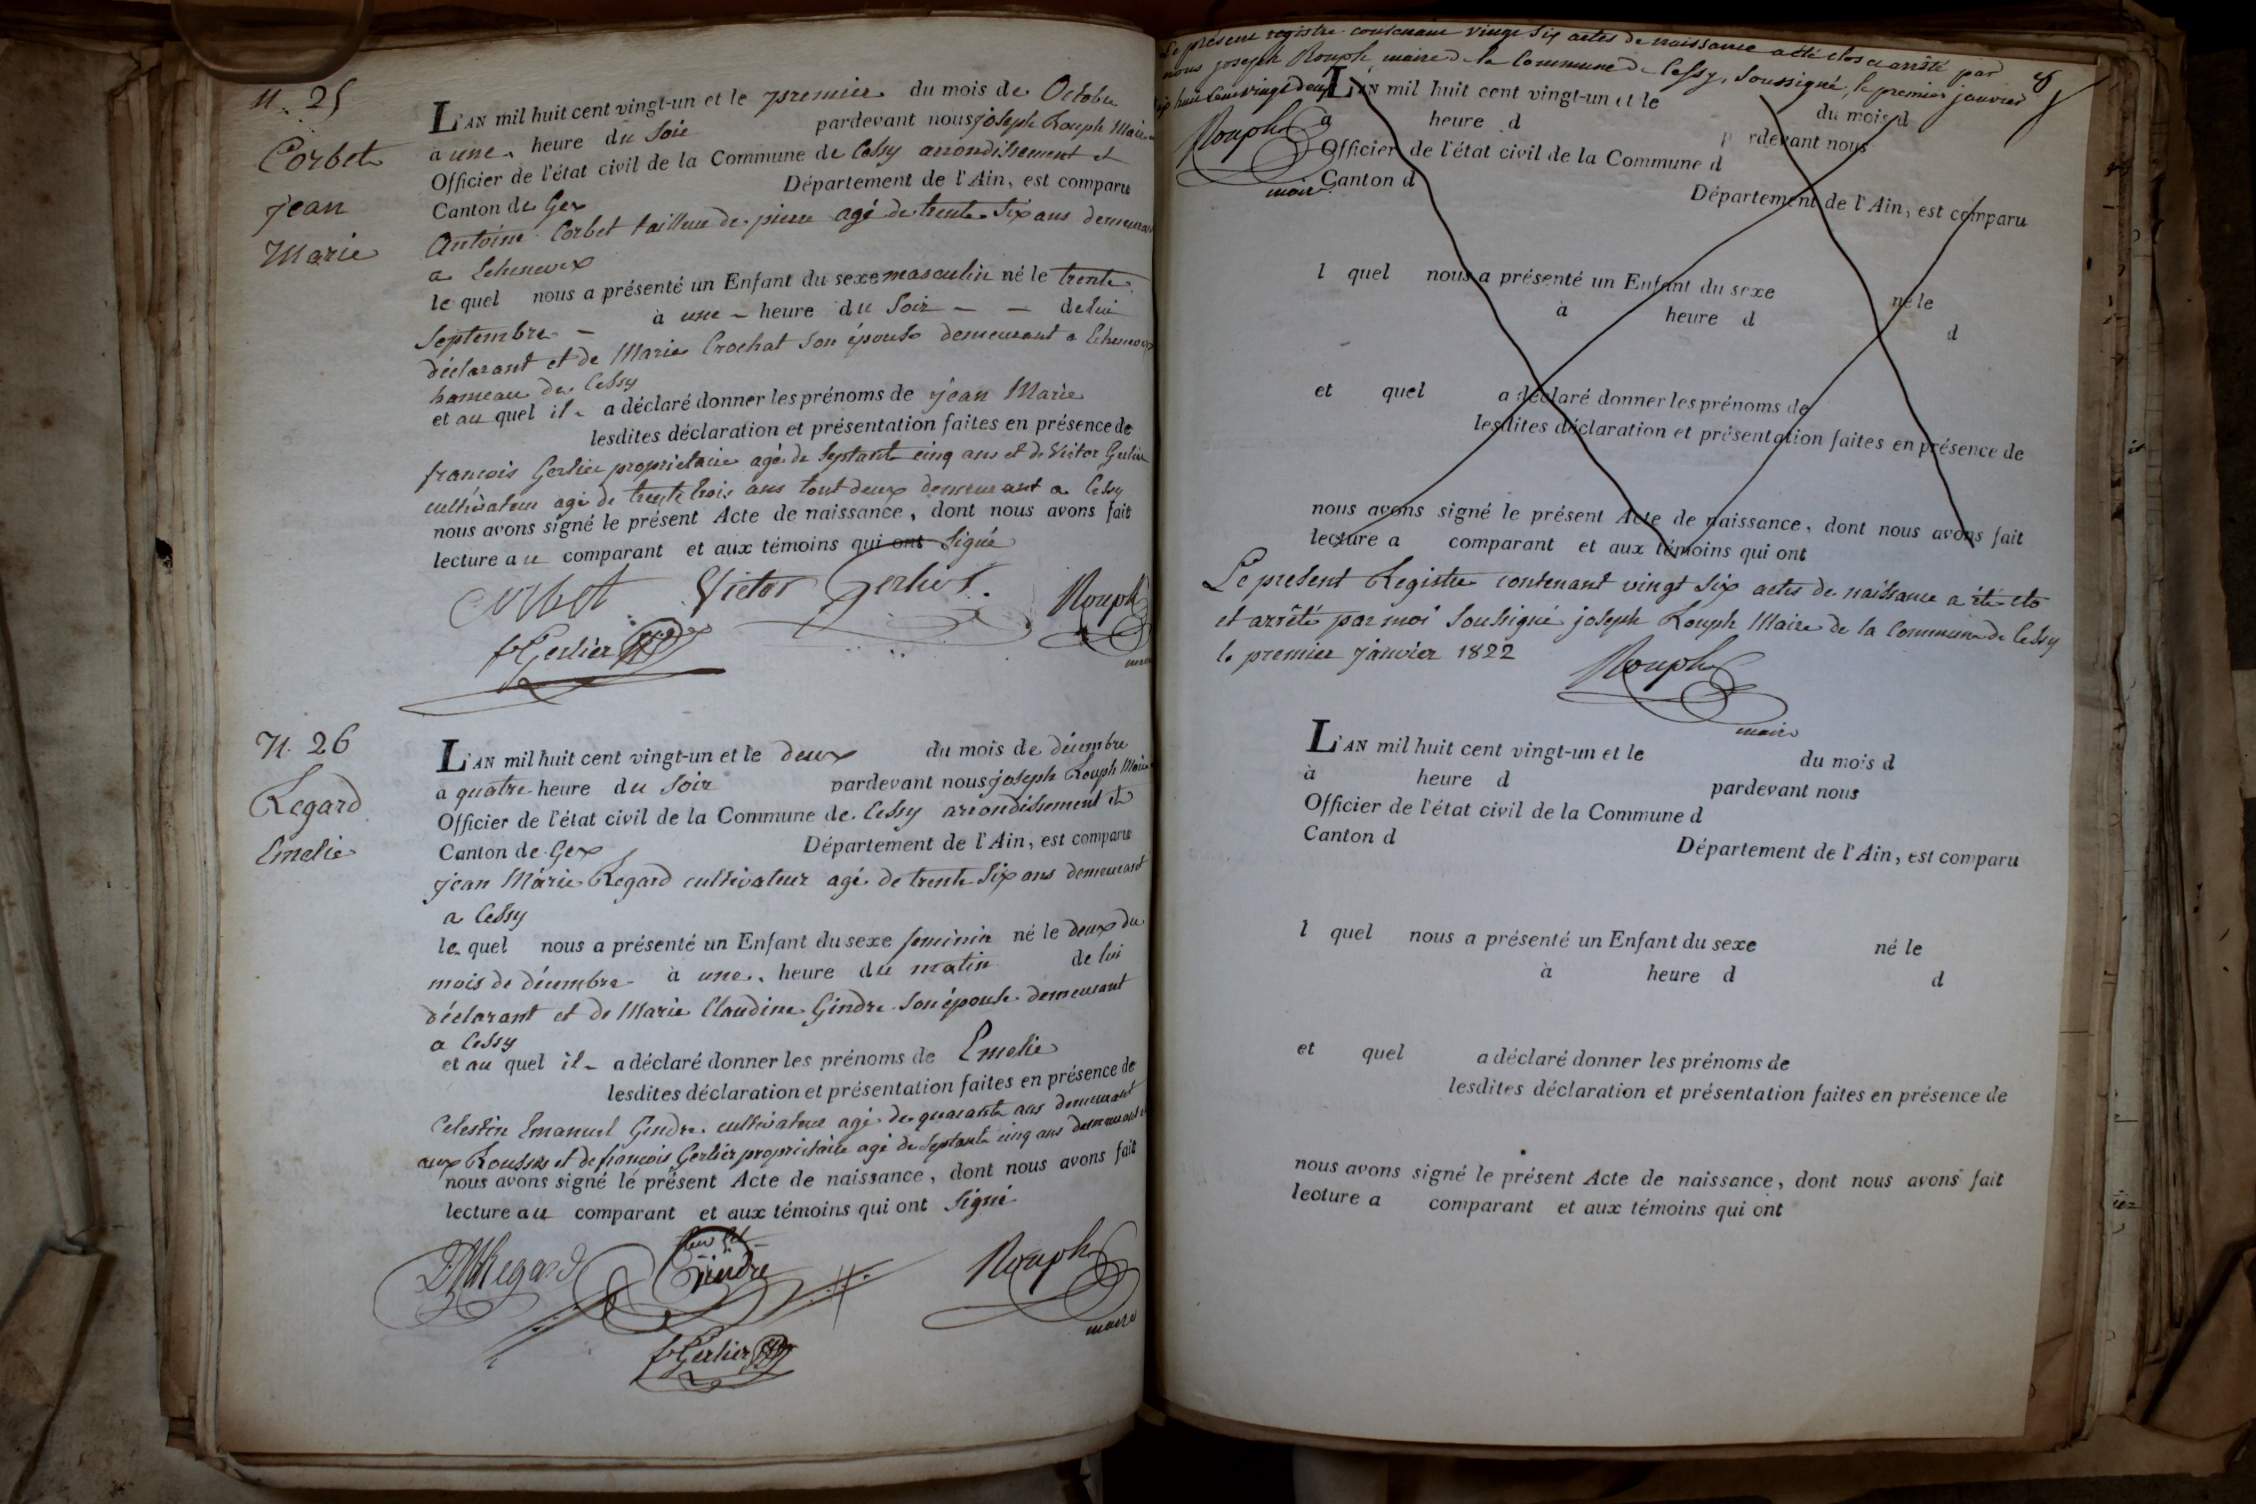 N. 25
Corbet
jean
Marie
L'AN mil huit cent vingt-un et le premier du mois de Octobre
à une heure du Soir pardevant nous joseph Rouph Maire
Officier de l'état civil de la Commune de Cessy arrondissement et
Canton de Gex Département de l'Ain, est comparu
Antoine Corbet tailleur de pierre agé de trente Six ans demeurant
a Echenevex
le quel nous a présenté un Enfant du sexe masculin né le trente
Septembre à une heure du Soir de lui
déclarant et de Marie Crochat Son épouse demeurant a Echenevex
hameau de Cessy
et au quel il a déclaré donner les prénoms de jean Marie
lesdites déclaration et présentation faites en présence de
francois Gerlier proprietaire agé de Septante cinq ans et de Victor Gerlier
cultivateur agé de trente trois ans tout deux demeurant a Cessy
nous avons signé le présent Acte de naissance, dont nous avons fait
lecture au comparant et aux témoins qui ont Signé
Corbet Victor Gerlier Rouph
f Gerlier maire
N. 26
Regard
Emelie
L'AN mil huit cent vingt-un et le deux du mois de décembre
à quatre heure du Soir pardevant nous joseph Rouph Maire
Officier de l'état civil de la Commune de Cessy arrondissement et
Canton de Gex Département de l'Ain, est comparu
jean Marie Regard cultivateur agé de trente Six ans demeurant
a Cessy
le quel nous a présenté un Enfant du sexe feminin né le deux du
mois de décembre à une heure du matin de lui
déclarant et de Marie Claudine Gindre Son épouse demeurant
a Cessy
et au quel il a déclaré donner les prénoms de Emelie
lesdites déclaration et présentation faites en présence de
Celestin Emanuel Gindre cultivateur agé de quarante ans demeurant
aux Rousses et de francois Gerlier proprietaire agé de Septante cinq ans demeurant
nous avons signé le présent Acte de naissance, dont nous avons fait
lecture au comparant et aux témoins qui ont Signé
Regard Gindre Rouph
maire
f Gerlier
Le présent registre contenant vingt Six actes de naissance a été clos et arrêté par
nous joseph Rouph maire de la Commune de Cessy, Soussigné, le premier janvier
huit Cent vingt deux
Rouph
maire
L'AN mil huit cent vingt-un et le du mois d
à heure d pardevant nous
Officier de l'état civil de la Commune d
Canton d Département de l'Ain, est comparu
l quel nous a présenté un Enfant du sexe né le
à heure d d
et quel a déclaré donner les prénoms de
lesdites déclaration et présentation faites en présence de
nous avons signé le présent Acte de naissance, dont nous avons fait
lecture a comparant et aux témoins qui ont
Le present Registre contenant vingt Six actes de naissance a été clo
et arrêté par moi Soussigné joseph Rouph Maire de la Commune de Cessy
le premier janvier 1822
Rouph
maire
L'AN mil huit cent vingt-un et le du mois d
à heure d pardevant nous
Officier de l'état civil de la Commune d
Canton d Département de l'Ain, est comparu
l quel nous a présenté un Enfant du sexe né le
à heure d d
et quel a déclaré donner les prénoms de
lesdites déclaration et présentation faites en présence de
nous avons signé le présent Acte de naissance, dont nous avons fait
lecture a comparant et aux témoins qui ont